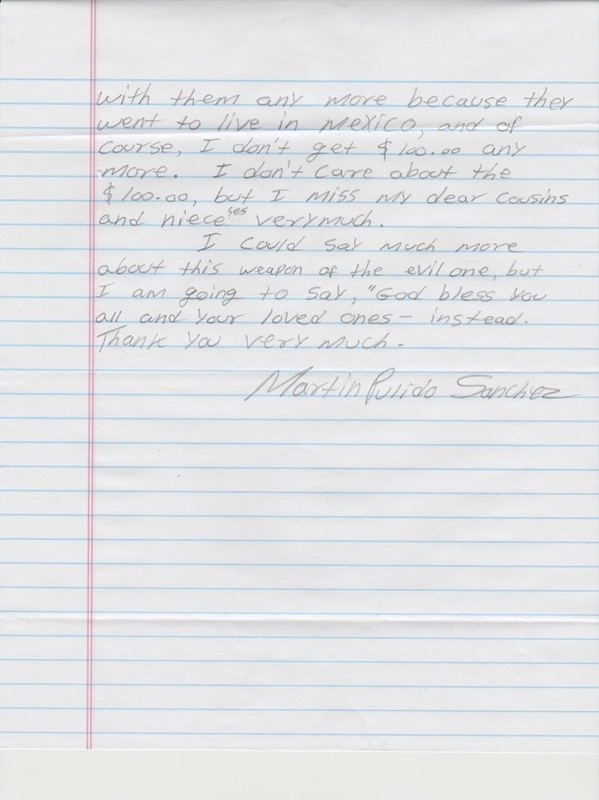 with them any more because they
went to live in Mexico, and of
course, I don't get $100.00 any
more. I don't care about the
$100.00, but I miss my dear cousins
and niece ses very much.
I could say much more
about this weapon of the evil one, but
I am going to say, "God bless you
all and your loved ones – instead.
Thank you very much.
Martin Pulido Sanchez